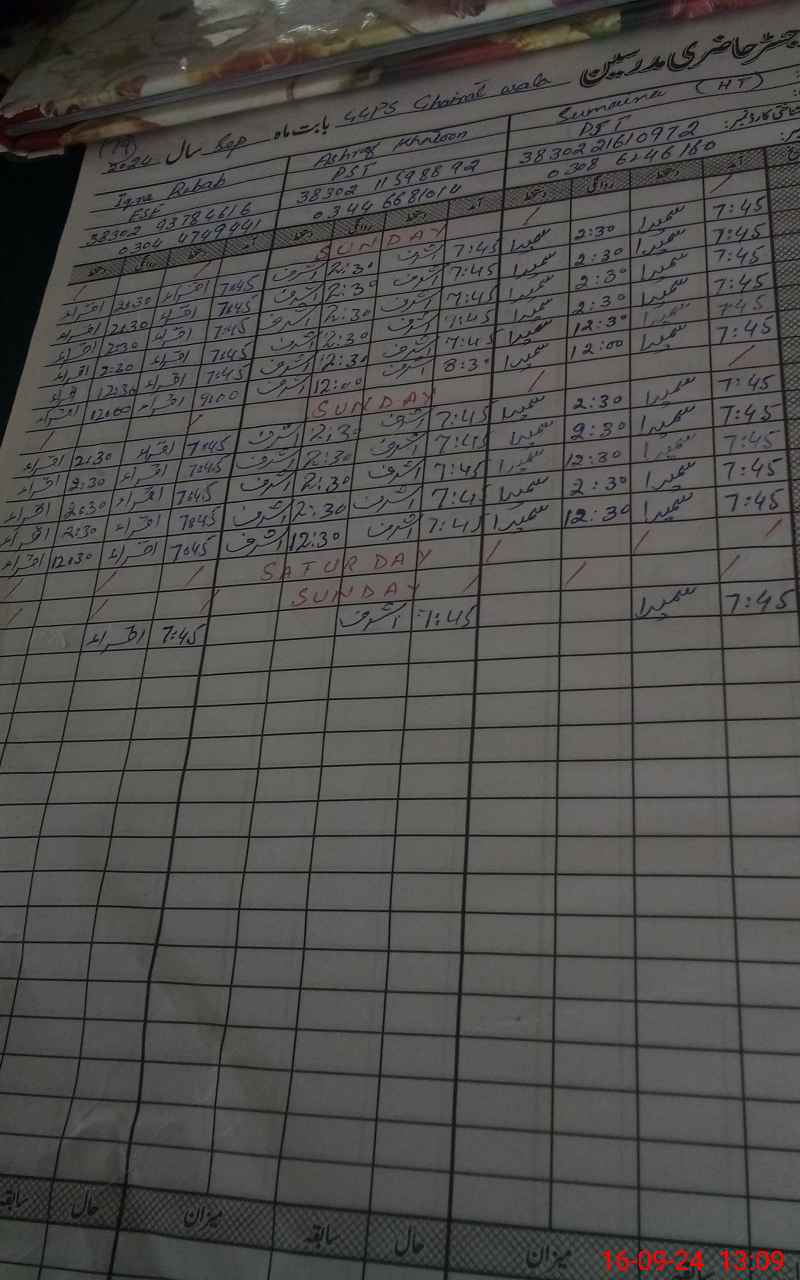 رجسٹر حاضری مدرسین
GGPS Chairat wala بابت ماہ Sep سال 2024
(19)
Sumaira (HT)
PST
38302 2161097 2
0308 6246160
Ashraf Khatoon
PST
38302 1159889 2
0344 6681014
Iqra Rubab
ESE
38302 9378461 6
0304 4749441
آمد دستخط روانگی دستخط آمد دستخط روانگی دستخط آمد دستخط روانگی دستخط
SUNDAY
7:45 سمیرا 2:30 سمیرا 7:45 اشرف 2:30 اشرف 7:45 اقراء 2:30 اقراء
7:45 سمیرا 2:30 سمیرا 7:45 اشرف 2:30 اشرف 7:45 اقراء 2:30 اقراء
7:45 سمیرا 2:30 سمیرا 7:45 اشرف 2:30 اشرف 7:45 اقراء 2:30 اقراء
7:45 سمیرا 2:30 سمیرا 7:45 اشرف 2:30 اشرف 7:45 اقراء 2:30 اقراء
7:45 سمیرا 12:30 سمیرا 7:45 اشرف 12:30 اشرف 7:45 اقراء 12:30 اقراء
7:45 سمیرا 12:00 سمیرا 8:30 اشرف 12:00 اشرف 9:00 اقراء 12:00 اقراء
SUNDAY
7:45 سمیرا 2:30 سمیرا 7:45 اشرف 2:30 اشرف 7:45 اقراء 2:30 اقراء
7:45 سمیرا 2:30 سمیرا 7:45 اشرف 2:30 اشرف 7:45 اقراء 2:30 اقراء
7:45 سمیرا 12:30 سمیرا 7:45 اشرف 2:30 اشرف 7:45 اقراء 2:30 اقراء
7:45 سمیرا 2:30 سمیرا 7:45 اشرف 2:30 اشرف 7:45 اقراء 2:30 اقراء
7:45 سمیرا 12:30 سمیرا 7:45 اشرف 12:30 اشرف 7:45 اقراء 12:30 اقراء
SATURDAY
SUNDAY
7:45 سمیرا 7:45 اشرف 7:45 اقراء
میزان حال سابقہ میزان حال سابقہ
16-09-24 13:09